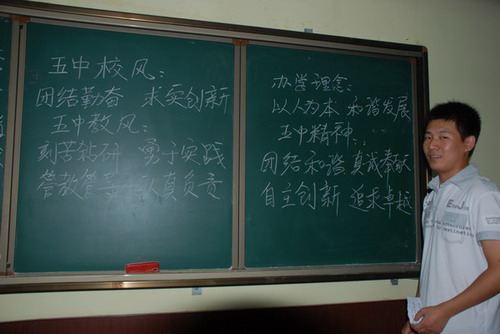 五中校风：
团结勤奋 求实创新
五中教风：
刻苦钻研 勇于实践
管教管导 认真负责
办学理念：
以人为本 和谐发展
五中精神：
团结和谐 真诚奉献
自主创新 追求卓越